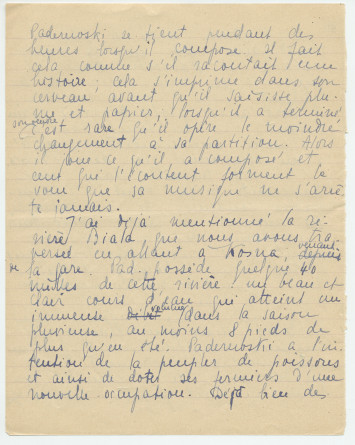 Paderewski se tient pendant des
heures lorsqu'il compose. Il fait
cela, comme s'il racontait une
histoire; cela s'imprime dans son
cerveau avant qu'il saisisse plu-
me et papier, lorsqu'il a terminé
son œuvre
c'est rare qu'il opère le moindre
changement à sa partition. Alors
il joue ce qu'il a composé et
ceux qui l'écoutent forment le
vœu que sa musique ne s'arrê-
te jamais.
J'ai déjà mentionné la ri-
vière Biala que nous avons tra-
versée en allant à Kosna, venant
depuis
la gare. Pad. possède quelque 40
milles de cette rivière: un beau et
clair cours d'eau qui atteint un
immense volume dans la saison
pluvieuse, au moins 8 pieds de
plus qu'en été. Paderewski a l'in-
tention de la peupler de poissons
et ainsi de doter ses fermiers d'une
nouvelle occupation. Déjà bien des